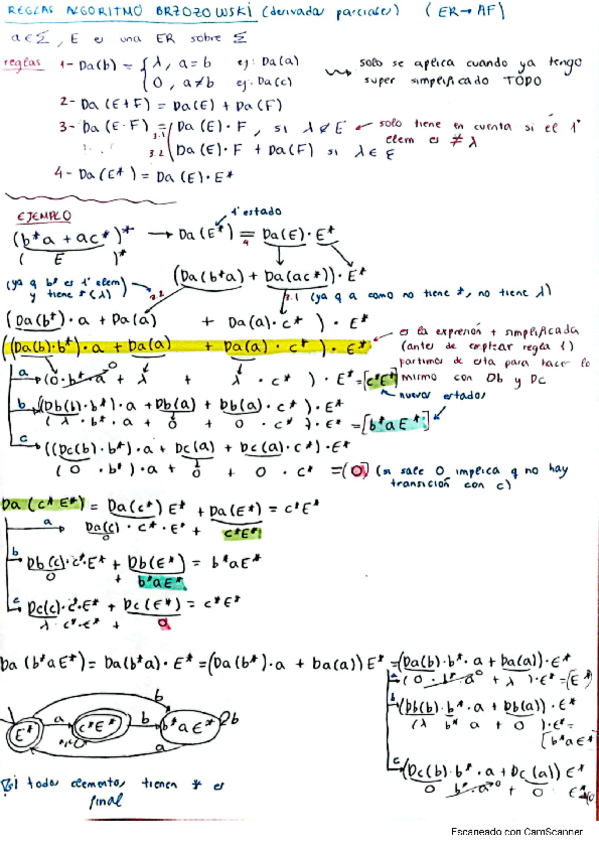 REGLAS ALGORITMO BRZOZOWSKI (derivadas parciales) (ER→AF)
a∈Σ, E es una ER sobre Σ
reglas 1- Da(b) = { λ, a=b ej: Da(a)
0, a≠b ej: Da(c)
solo se aplica cuando ya tengo
super simplificado TODO
2- Da(E+F) = Da(E) + Da(F)
3- Da(E·F) = 3.1 Da(E)·F, si λ∉E
3.2 Da(E)·F + Da(F) si λ∈E
solo tiene en cuenta si el 1º
elem es ≠ λ
4- Da(E*) = Da(E)·E*
EJEMPLO
1º estado
(b*a + ac*)* → Da(E*) =4 Da(E)·E*
( E )*
(Da(b*a) + Da(ac*))·E*
(ya q b* es 1º elem)
y tiene *(λ) 3.2
3.1 (ya q a como no tiene *, no tiene λ)
(Da(b*)·a + Da(a) + Da(a)·c*)·E*
((Da(b)·b*)·a + Da(a) + Da(a)·c*)·E*
es la expresión + simplificada
(antes de empezar regla 1)
partimos de esta para hacer lo
mismo con Db y Dc
a (0·b*·a 0 + λ + λ·c*)·E* = [c*E*]
nuevos estados
b ((Db(b)·b*)·a + Db(a) + Db(a)·c*)·E*
(λ·b*·a + 0 + 0·c*)·E* = [b*aE*]
c ((Dc(b)·b*)·a + Dc(a) + Dc(a)·c*)·E*
(0·b*)·a + 0 + 0·c* = (0) (si sale 0 implica q no hay
transición con c)
Da(c*E*) = Da(c*)E* + Da(E*) = c*E*
a Da(c)·c*·E* + c*E*
0
b Db(c)·c*·E* + Db(E*) = b*aE*
0 + b*aE*
c Dc(c)·c*·E* + Dc(E*) = c*E*
λ·c*·E* + 0
Da(b*aE*) = Da(b*a)·E* = (Da(b*)·a + Da(a))E* = (Da(b)·b*·a + Da(a))·E*
a (0·b*·a 0 + λ)·E* = [E*]
b (Db(b)·b*·a + Db(a))·E*
(λ b* a + 0)·E* =
[b*aE*]
c (Dc(b)·b*·a + Dc(a))E*
0 b*·a 0 + 0 E* 0
E* a c*E* b b*aE* b
b
a
Si todos elementos tienen * es
final
Escaneado con CamScanner